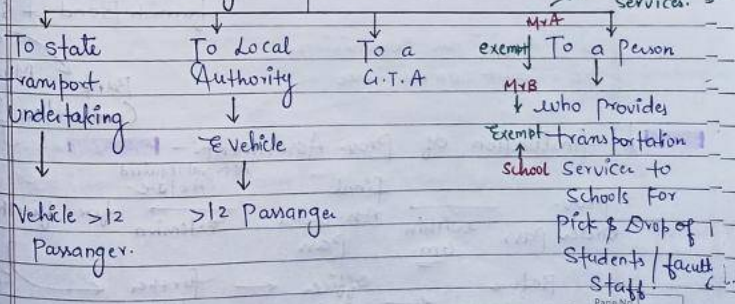 Services.
To state
transport
Undertaking
Vehicle >12
Passanger.
To Local
Authority
E vehicle
>12 Passanger
To a
G.T.A
MrA
exempt
MrB
Exempt
School
To a person
who provides
transportation
Services to
Schools For
Pick & Drop of
Students / facult
Staff